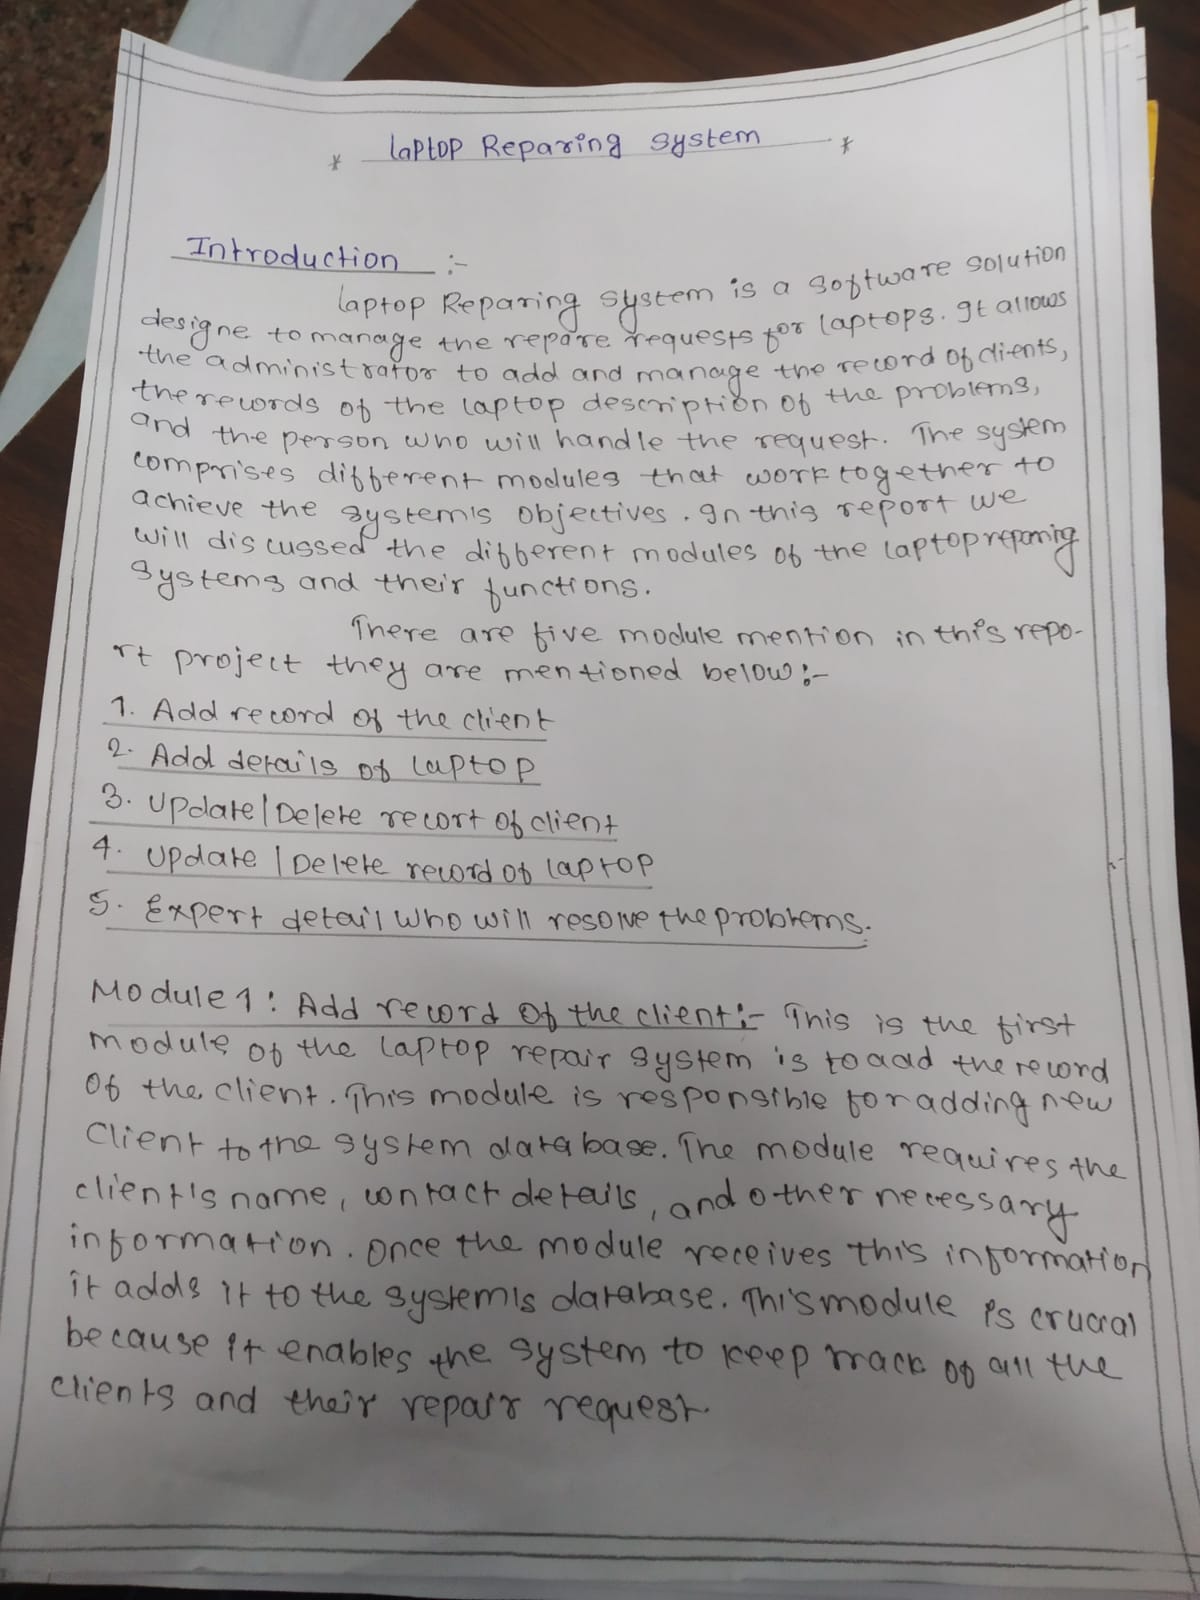 * Laptop Reparing System *
Introduction :-
laptop Reparing system is a software solution
designe to manage the repare requests for laptops. It allows
the administrator to add and manage the record of clients,
the records of the laptop description of the problems,
and the person who will handle the request. The system
comprises different modules that work together to
achieve the system's objectives. In this report we
will discussed the different modules of the laptop reparing
systems and their functions.
There are five module mention in this repo-
rt project they are mentioned below :-
1. Add record of the client
2. Add details of laptop
3. Update/Delete recort of client
4. Update/Delete record of laptop
5. Expert detail who will resolve the problems.
Module 1: Add record of the client :- This is the first
module of the laptop repair system is to add the record
of the client. This module is responsible for adding new
Client to the system database. The module requires the
client's name, contact details, and other necessary
information. Once the module receives this information
it adds it to the system's database. This module is crucial
because it enables the system to keep track of all the
clients and their repair request.